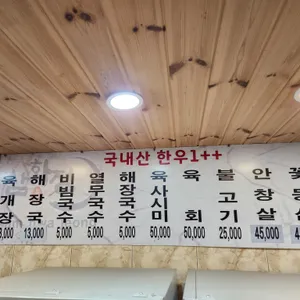 국내산 한우1++
육개장
해장국 13,000
비빔국수 5,000
열무국수 5,000
해장국수 5,000
육사시미 50,000
육회 50,000
불고기 25,000
안창살 45,000
꽃등심